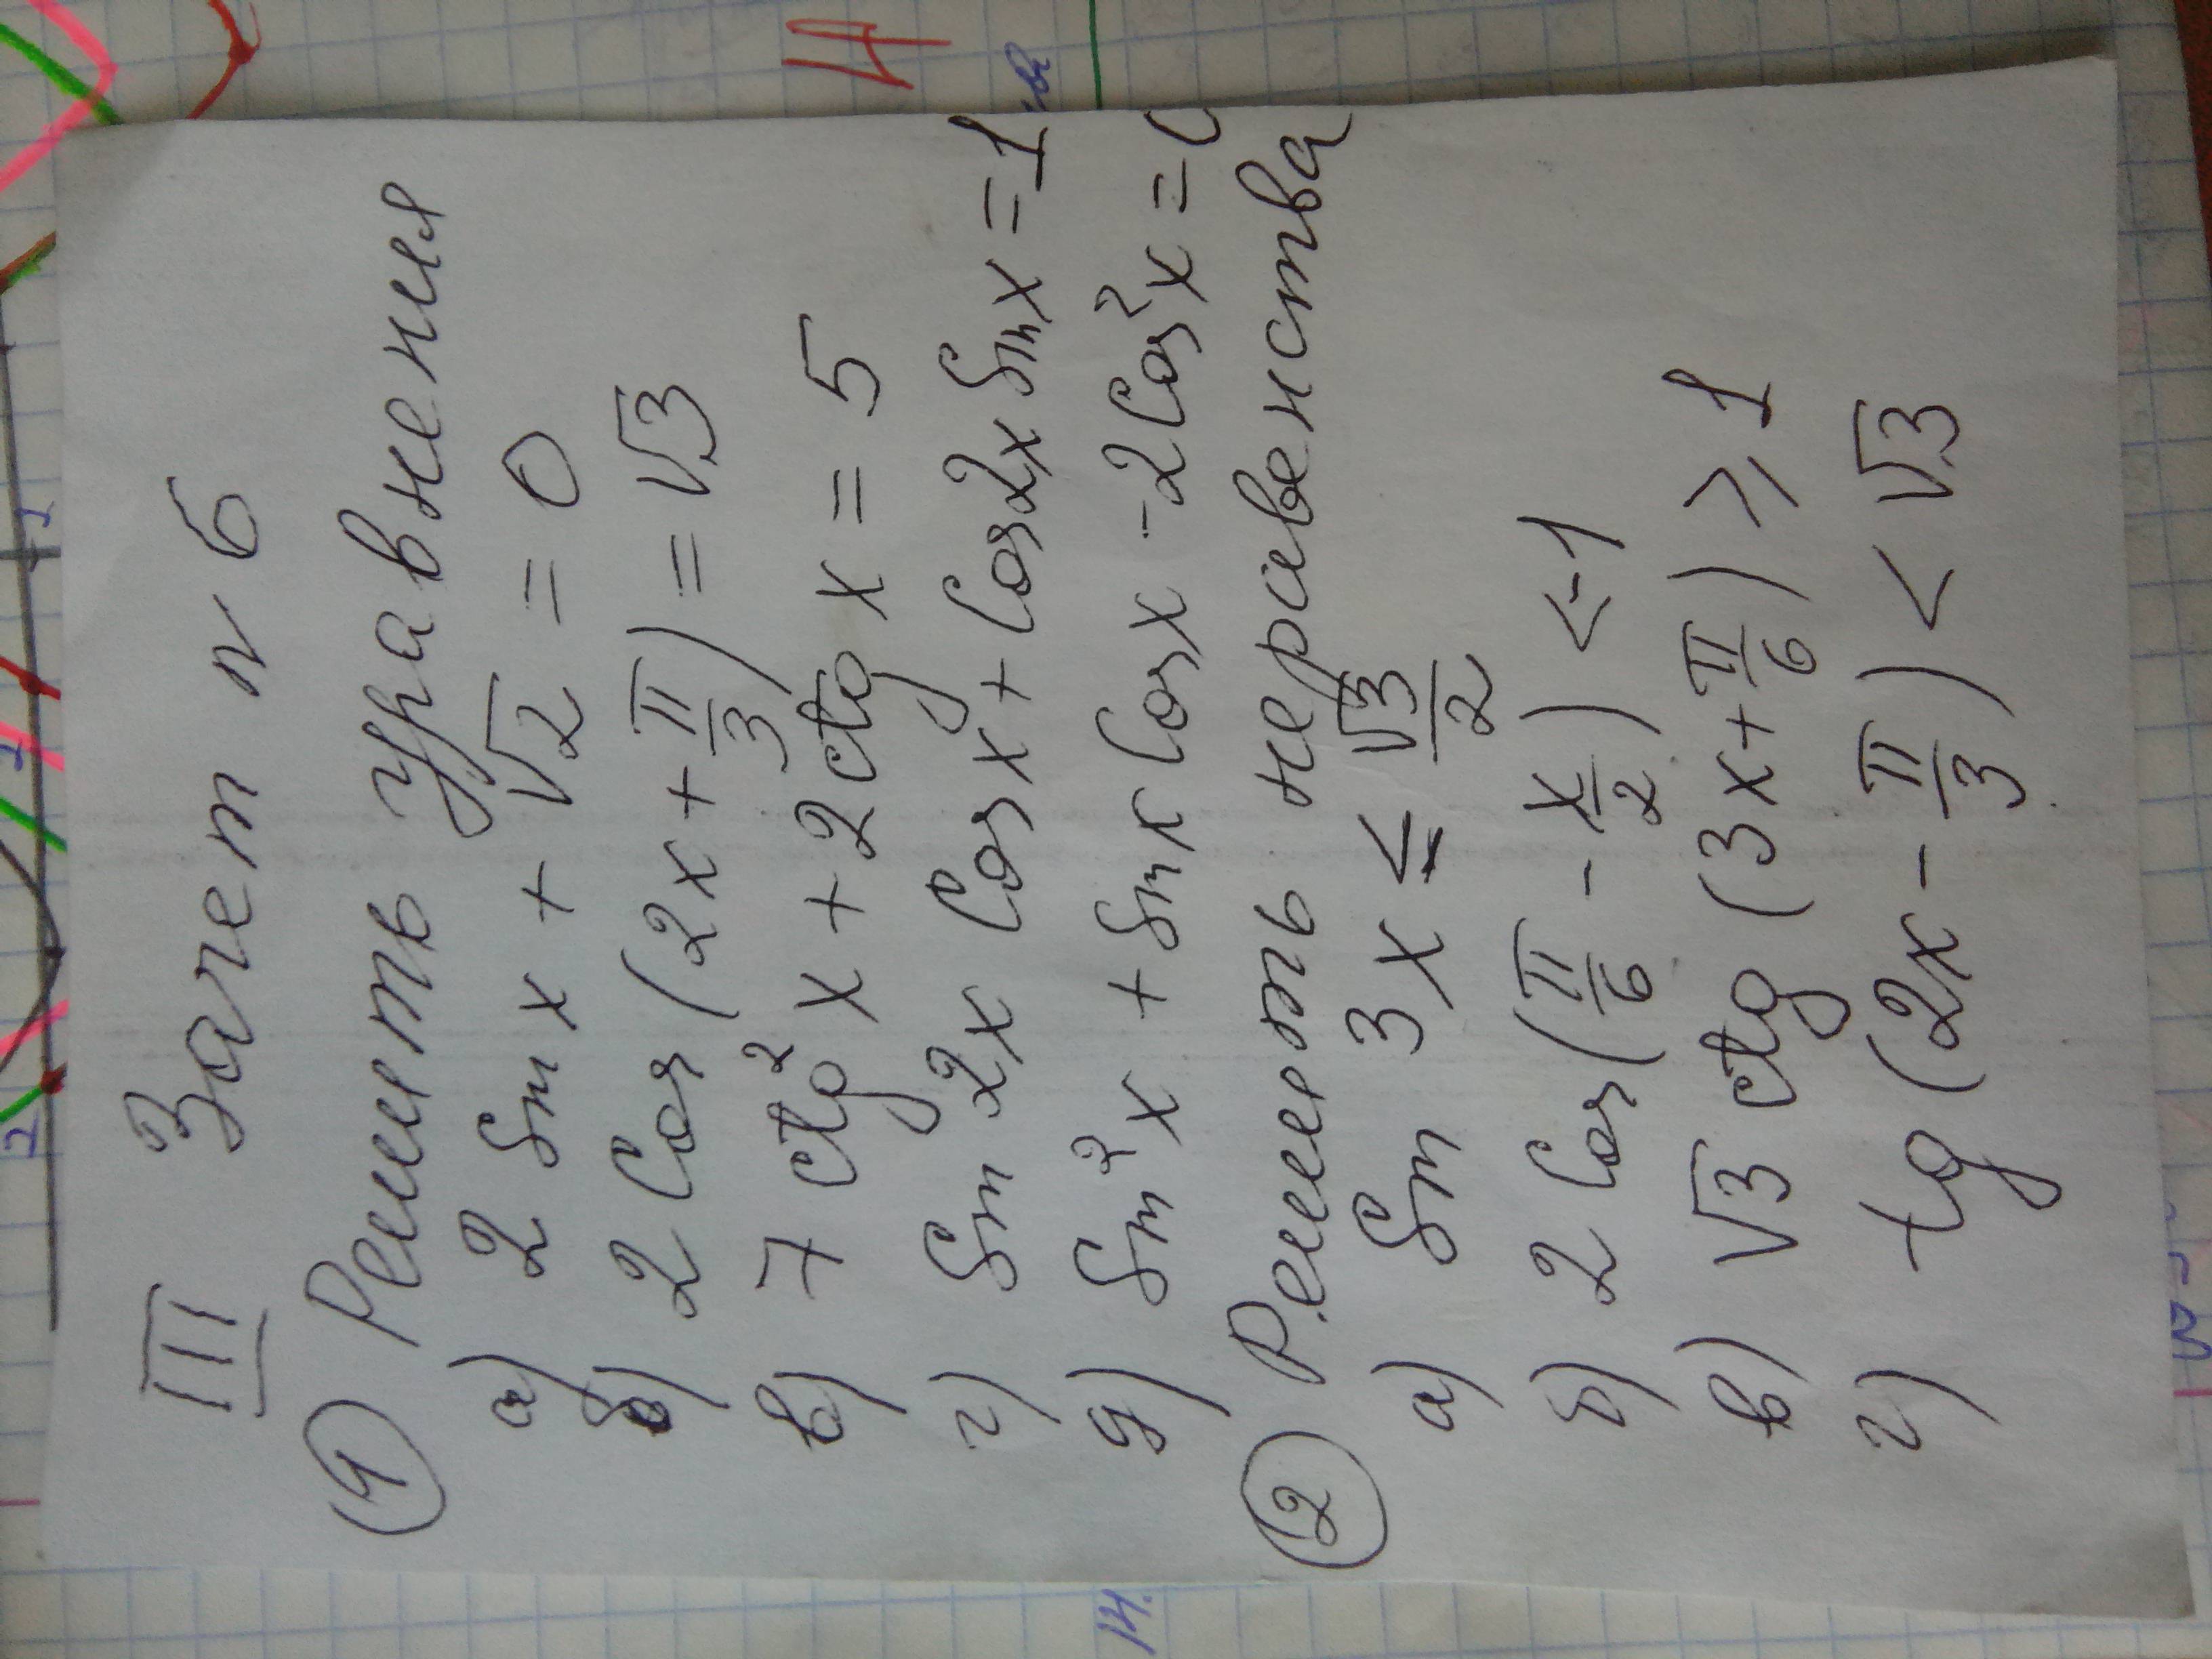 III Зачет n 6
① Решить уравнения
а) 2 Sin x + √2 = 0
б) 2 Cos (2x + π/3) = √3
в) 7 ctg² x + 2 ctg x = 5
г) Sin 2x Cos x + Cos 2x Sin x = 1
д) Sin² x + Sin x Cos x - 2 Cos² x = 0
② Решить неравенства
а) Sin 3x ≤ √3/2
б) 2 Cos (π/6 - x/2) < -1
в) √3 ctg (3x + π/6) ⩾ 1
г) tg (2x - π/3) < √3
14.